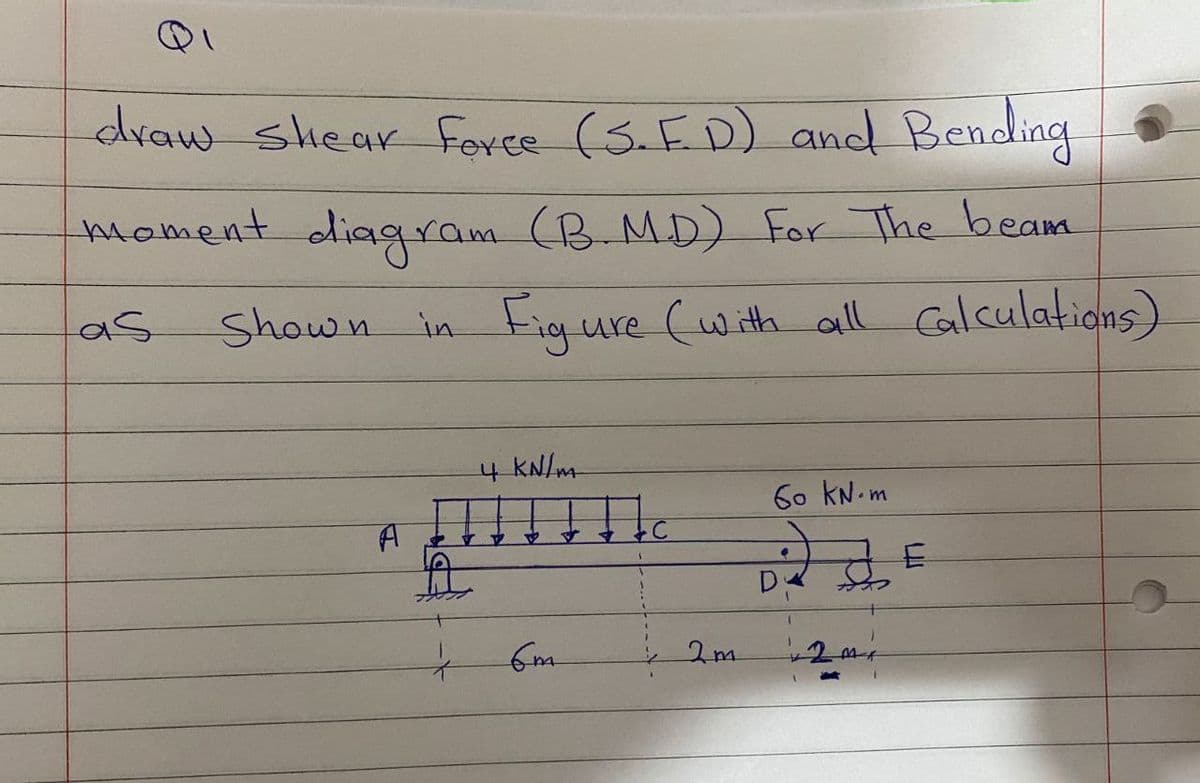 Q1
draw shear Force (S.F.D) and Bending
moment diagram (B.MD) For The beam
as shown in Figure (with all Calculations)
4 KN/m
60 KN.m
A
C
E
D
6m
2m
2 m